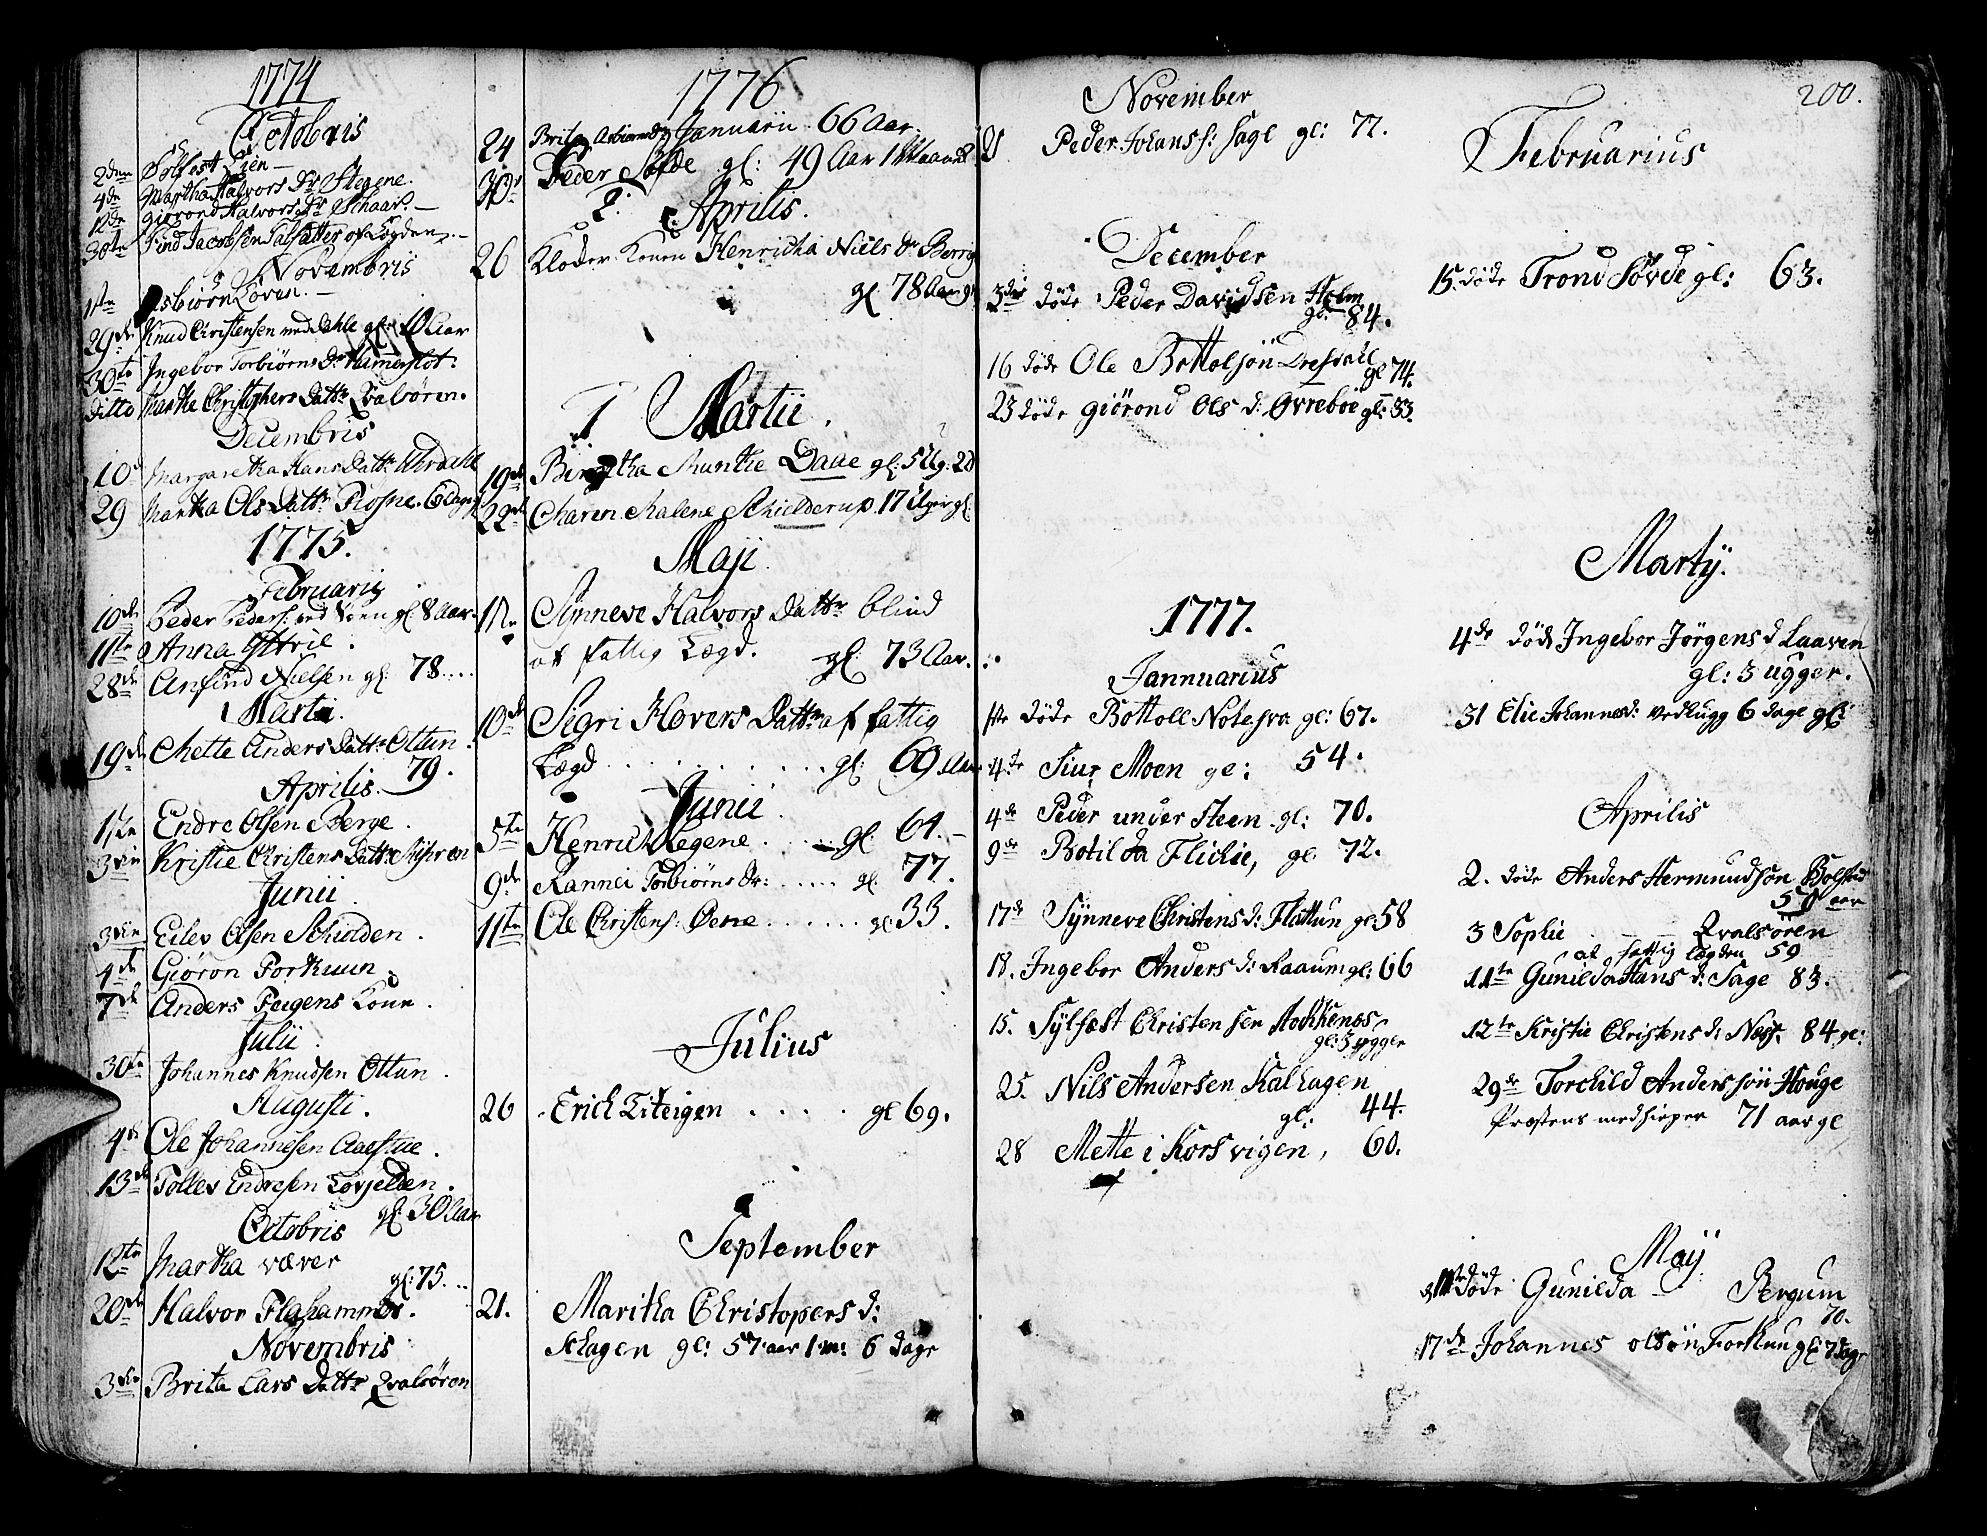 1774
Octobris
2den Sölfest Lien
4de Martha Halvors Dr Stegene.
12de Giörond Halvors Dr Schaar.
30te Find Jacobsen Talsætter af Lægden
Novembris
1ste Asbiörn Løven.
29de Knud Christensen ved Dahle gl: 40 Aar
30te Ingebor Torbiörns Dr Hammerslot.
Ditto Marthe Christophers Dattr Qvalsören.
Decembris
10 Margaretha Hans Dattr Uhrdahl
29 Martha Ols Dattr Fiosne. 6 Dage gl
1775.
Februarij
10de Peder Peders: ved Söen gl 8 Aar.
11te Anna Ottrie.
28de Anfind Nielsen gl: 78....
Martii.
19de Chette Anders Dattr Ottun.
79.
Aprilis.
1ste Endre Olsen Berge.
3die Kristie Christens Dattr
Junii
3die Eilev Olsen Schiolden.
4de Giøron Forthuun.
7de Anders Feigens Kone.
Julii
30te Johannes Knudsen Ottun.
Augusti.
4de Ole Johannesen Aaestue.
13de Tollev Endresen Lovjelden.
gl: 30 Aar
Octobris
12te Martha væver
gl: 75...
20de Halvor Flahammer.
Novembris
3die Brita Lars Dattr Qvalsören
1776
Januarii
24 Brita Asbiørns Dr 66 Aar.
30te Peder Søfde gl: 49 Aar 1 Maaned
Aprilis.
26 Kloder Konen Henricha Niels Dr Berrig
gl. 78 Aar gl.
Martii.
19de Birgitha Munthe Daae gl: 5 Ug: 2 d
22de Charen Malene Schielderup. 17 Uger gl.
Maji.
1ste Synneve Halvors Dattr blind
af fattig Lægd. gl: 73 Aar.
10de Segri Hovers Dattr af fattig
Lægd . . . . gl: 69 Aar
Junii
5te Henrich Hegene . . . gl: 61.
9de Rannei Torbiörns Dr: . . . . gl: 77.
11te Ole Christens: Oene . . . . . gl: 33.
Julius
26 Erich Liteigen . . . . . gl 69.
September
21. Maritha Christopers d:
Schagen gl: 57 aar 1 m: 6 dage
November
21 Peder Johanss: Sage gl: 77.
December
3die døde Peder Davidsen Holm
gl: 84.
16 døde Ole Bottolsön Dresvalk
gl 74.
23 døde Giörond Ols d: Øvreboe gl: 83.
1777.
Jannuarius
1ste døde Bottoll Notesva gl: 67.
4te Siur Moen gl: 54.
4de Peder under Steen gl: 70.
9de Botilda Flickie, gl. 72.
17de Synneve Christens d: Flattun gl: 58
18. Ingebor Anders d: Raaum gl: 66
15. Sylfæst Christensen Aochkenæs
gl: 3 ugger
25. Nils Andersen Kalhagen
gl: 44.
28 Mette i Korsvigen, 60.
200.
Februarius
15. døde Trond Søvde gl: 63.
Martij.
4de døde Ingebor Jörgens d Laaven
gl: 3 ugger.
31 Elie Johannesd: vedhugg 6 dage gl:
Aprilis
2. døde Anders Hermundsøn Bolstad
59 aar
3 Sophie Qvalsören
af fattig lægden 59
11te Gunilda Hans d: Sage 83.
12te Kristie Christens d: Næss. 84 gl:
29de Torchild Anderssön Houge
Præstens medhielper 71 aar gl
Maij
døde Gunilda Bergum
70.
17de Johannes olsön Forthun gl: 7 dage